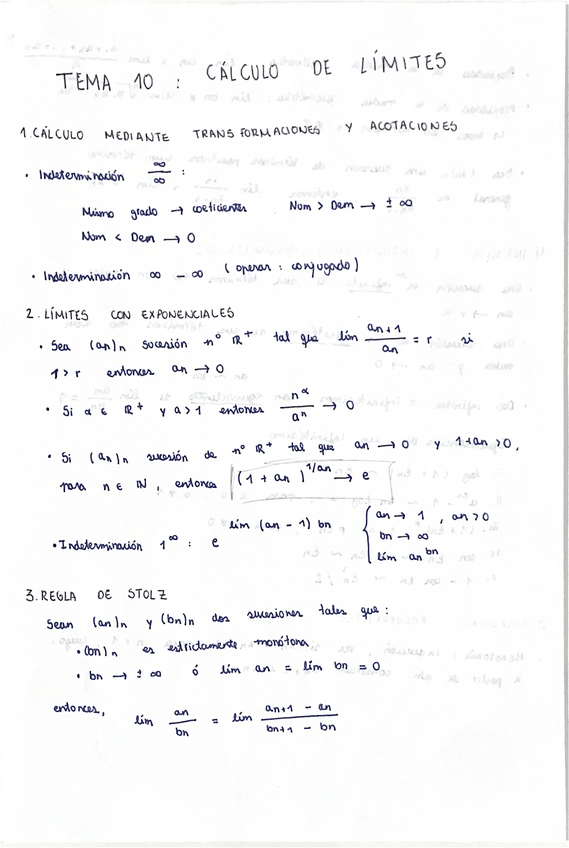 TEMA 10 : CÁLCULO DE LÍMITES
1. CÁLCULO MEDIANTE TRANSFORMACIONES Y ACOTACIONES
• Indeterminación ∞/∞ :
Mismo grado → coeficientes Num > Dem → ± ∞
Num < Den → 0
• Indeterminación ∞ - ∞ (operar : conjugado)
2. LÍMITES CON EXPONENCIALES
• Sea (an)n sucesión nº ℝ⁺ tal que lím an+1/an = r si
1 > r entonces an → 0
• Si α ∈ ℝ⁺ y a > 1 entonces n^α/a^n → 0
• Si (an)n sucesión de nº ℝ⁺ tal que an → 0 y 1+an > 0,
para n ∈ ℕ, entonces (1 + an)^1/an → e
• Indeterminación 1^∞ : e^lím (an - 1) bn { an → 1, an > 0
bn → ∞
lím an^bn
3. REGLA DE STOLZ
Sean (an)n y (bn)n dos sucesiones tales que :
• (bn)n es estrictamente monótona
• bn → ± ∞ ó lím an = lím bn = 0
entonces, lím an/bn = lím an+1 - an/bn+1 - bn